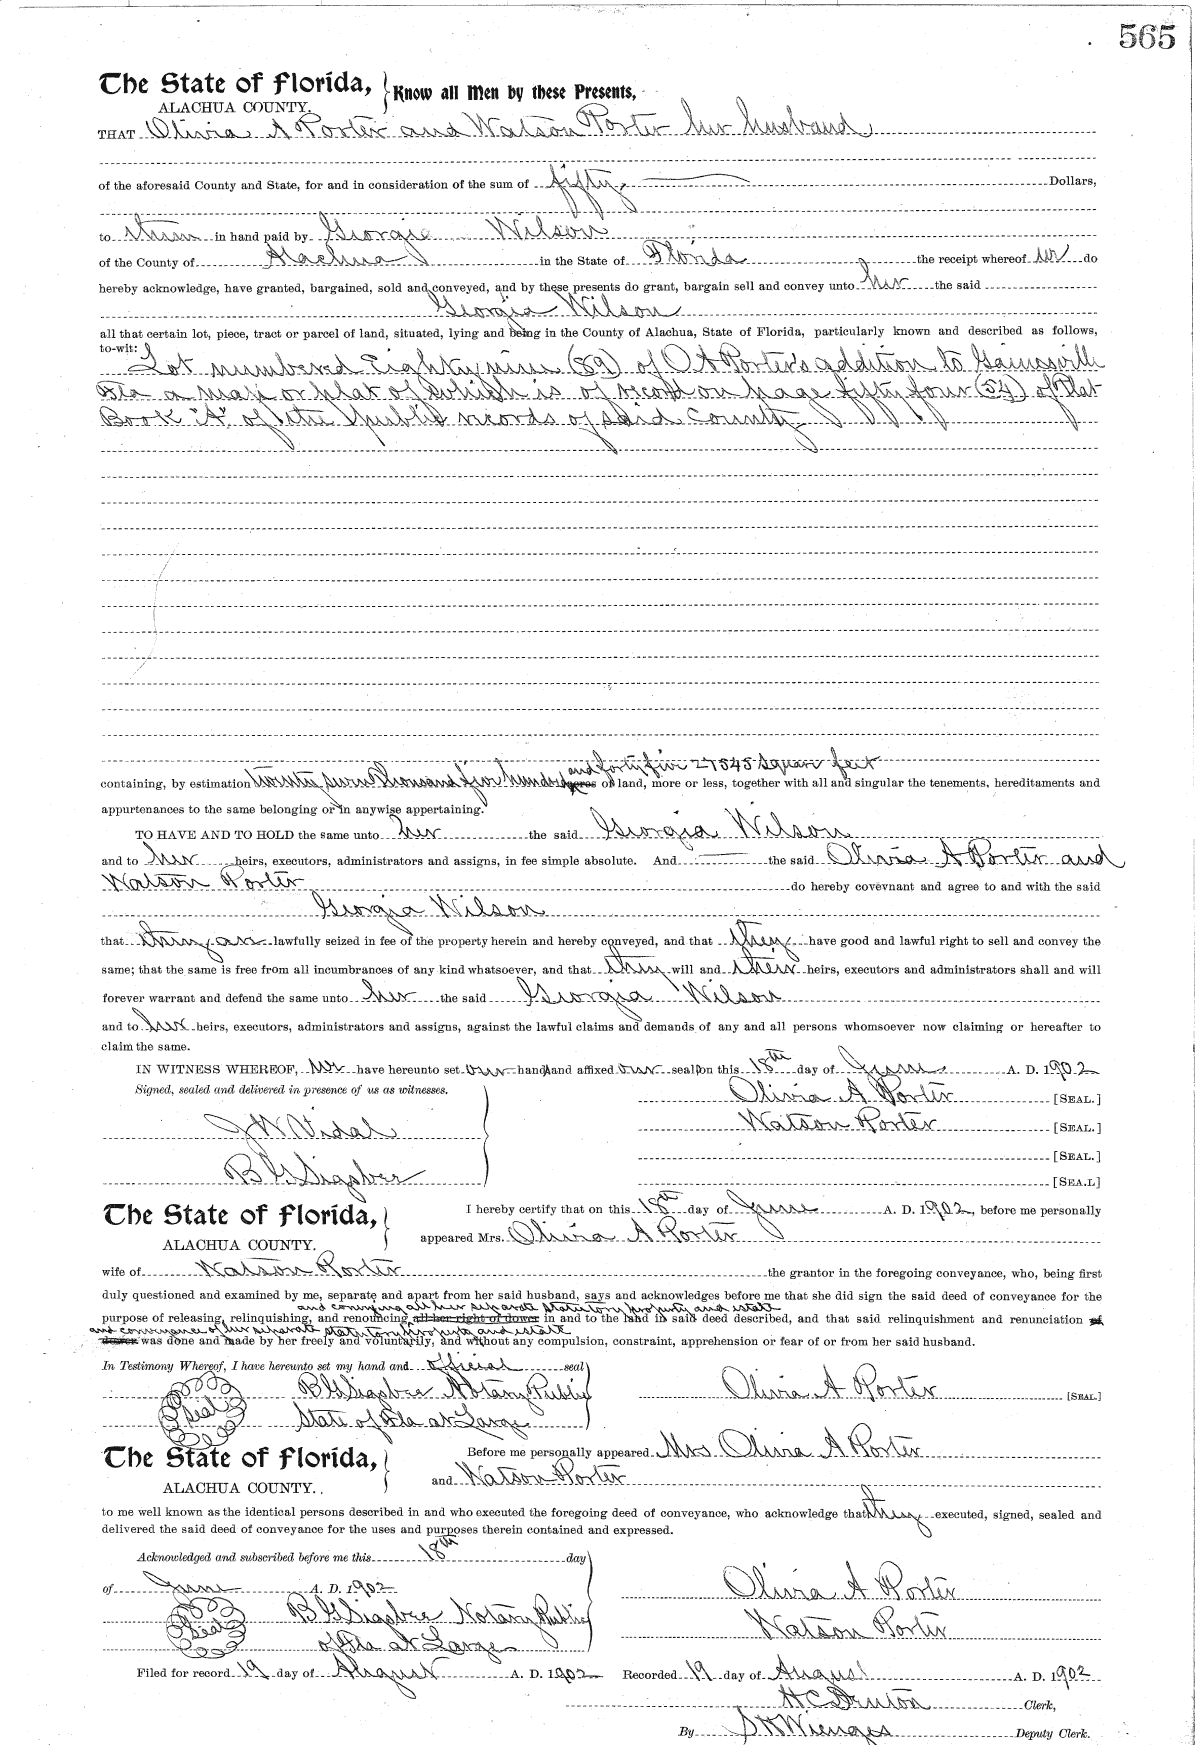 565
The State of Florida, Know all Men by these Presents,
ALACHUA COUNTY.
THAT Olivia A Porter and Watson Porter her husband
of the aforesaid County and State, for and in consideration of the sum of fifty Dollars,
to them in hand paid by Georgia Wilson
of the County of Alachua in the State of Florida the receipt whereof we do
hereby acknowledge, have granted, bargained, sold and conveyed, and by these presents do grant, bargain sell and convey unto her the said
Georgia Wilson
all that certain lot, piece, tract or parcel of land, situated, lying and being in the County of Alachua, State of Florida, particularly known and described as follows,
to-wit: Lot numbered Eighty nine (89) of O A Porter's addition to Gainesville
Fla a map or plat of which is of record on page fifty four (54) of Plat
Book "A" of the public records of said County
and forty five 27545 square feet
containing, by estimation twenty seven thousand five hundred acres of land, more or less, together with all and singular the tenements, hereditaments and
appurtenances to the same belonging or in anywise appertaining.
TO HAVE AND TO HOLD the same unto her the said Georgia Wilson
and to her heirs, executors, administrators and assigns, in fee simple absolute. And the said Olivia A Porter and
Watson Porter do hereby covevnant and agree to and with the said
Georgia Wilson
that they are lawfully seized in fee of the property herein and hereby conveyed, and that they have good and lawful right to sell and convey the
same; that the same is free from all incumbrances of any kind whatsoever, and that they will and their heirs, executors and administrators shall and will
forever warrant and defend the same unto her the said Georgia Wilson
and to her heirs, executors, administrators and assigns, against the lawful claims and demands of any and all persons whomsoever now claiming or hereafter to
claim the same.
IN WITNESS WHEREOF, we have hereunto set our hands and affixed our seals on this 18th day of June A. D. 1902
Signed, sealed and delivered in presence of us as witnesses. Olivia A Porter [SEAL.]
J W Vidal Watson Porter [SEAL.]
[SEAL.]
B G Sigsbee [SEA.L]
The State of Florida, I hereby certify that on this 18th day of June A. D. 1902, before me personally
ALACHUA COUNTY. appeared Mrs. Olivia A Porter
wife of Watson Porter the grantor in the foregoing conveyance, who, being first
duly questioned and examined by me, separate and apart from her said husband, says and acknowledges before me that she did sign the said deed of conveyance for the
and conveying all her separate statutory property and estate
purpose of releasing, relinquishing, and renouncing all her right of dower in and to the land in said deed described, and that said relinquishment and renunciation of
and conveyance of her separate statutory property and estate
dower was done and made by her freely and voluntarily, and without any compulsion, constraint, apprehension or fear of or from her said husband.
In Testimony Whereof, I have hereunto set my hand and official seal
Seal B G Sigsbee Notary Public Olivia A Porter [SEAL.]
State of Fla at Large
The State of Florida, Before me personally appeared Mrs Olivia A Porter
ALACHUA COUNTY. and Watson Porter
to me well known as the identical persons described in and who executed the foregoing deed of conveyance, who acknowledge that they executed, signed, sealed and
delivered the said deed of conveyance for the uses and purposes therein contained and expressed.
Acknowledged and subscribed before me this 18th day
of June A. D. 1902 Olivia A Porter
Seal B G Sigsbee Notary Public Watson Porter
of Fla at Large
Filed for record 19 day of August A. D. 1902 Recorded 19 day of August A. D. 1902
H C Denton Clerk,
By S H Wienges Deputy Clerk.